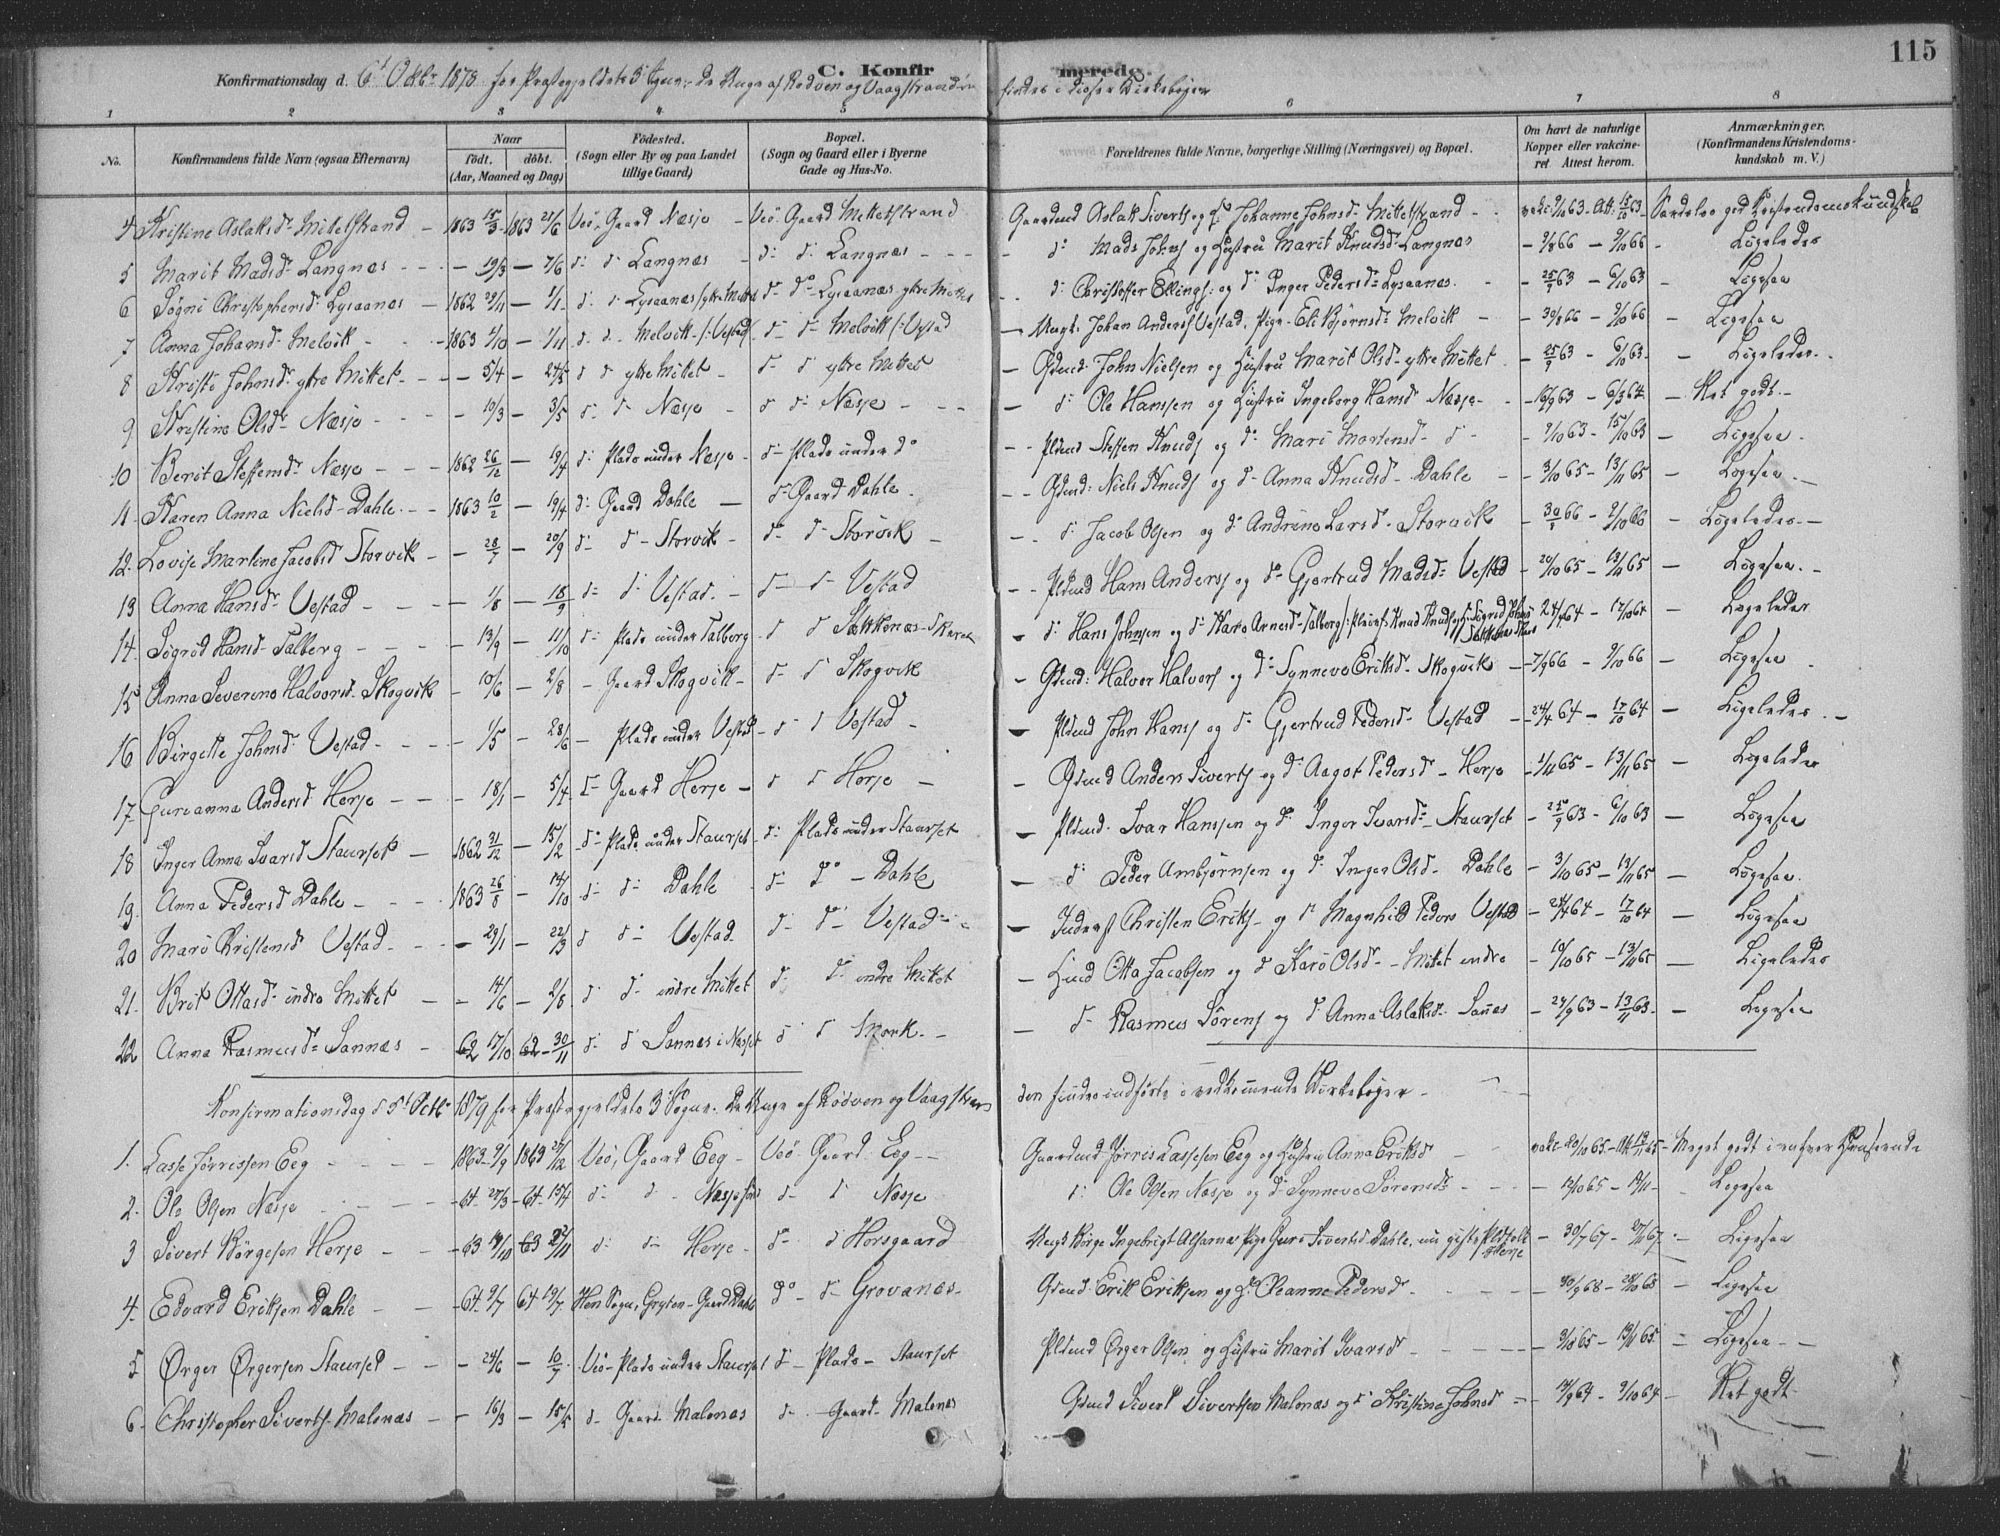 115
C. Konfirmerede.
Konfirmationsdag d. 6t Oktbr 1878 for Præstegjeldets 3 Sogne. De Unge af Rødven og Vaagstranden findes i disses Kirkebøger
1 2 3 4 5 6 7 8
No. Konfirmandens fulde Navn (ogsaa Efternavn) Naar født. døbt. (Aar, Maaned og Dag) Fødested. (Sogn eller By og paa Landet tillige Gaard) Bopæl. (Sogn og Gaard eller i Byerne Gade og Hus-No. Forældrenes fulde Navne, borgerlige Stilling (Næringsvei) og Bopæl. Om havt de naturlige Kopper eller vakcineret Attest herom. Anmærkninger. (Konfirmandens Kristendomskundskab m. V.)
4 Kristine Aslaksd. Mittetstrand - 1863 15/3 1863 21/6 Veø, Gaard Næsje - Veø Gaard Mittetstrand Gaardmd Aslak Siverts og Johanne Johnsd. Mittetstrand - vakc. 9/10 63 - Att. 15/10 63 Særdeles god Kristendomskundskab
5 Marit Madsd. Langnæs - - 19/3 - 7/6 d. d. Langnæs - d. d. Langnæs - d. Mads Johns og Hustru Marit Knudsd. Langnæs - 9/8 66 - 9/10 66 - Ligeledes
6 Søgni Christophersd. Lysaanæs - 1862 29/11 - 1/1 d. d. Lysaanæs /ytre Mittet d. do Lysaanæs ytre Mittet d. Christoffer Ellings. og d. Inger Pedersd. Lysaanæs - 25/9 63 - 6/10 63 - Ligesaa
7 Anna Johansd. Melvik - 1863 4/10 - 1/11 d. d. Melvik /: Vestad d. d. Melvik /: Vestad - Ungk. Johan Anders Vestad, Pige Eli Bjørnsd. Melvik - 30/8 66 - 9/10 66 - Ligesaa
8 Kristi Johnsd. ytre Mittet - - 5/4 - 24/5 d. d. ytre Mittet - d. d. ytre Mittet - Gdmd. John Nielsen og Hustru Marit Olsd. ytre Mittet - 25/9 63 - 6/10 63 - Ligeledes
9 Kristine Olsd. Næsje - - 10/3 - 3/5 d. d. Næsje - d. d. Næsje - d. Ole Hanssen og Hustru Ingeborg Hansd Næsje - 16/9 63 - 6/3 64 - Ret godt.
10 Berit Steffensd. Næsje - 1862 26/12 - 19/4 d. Plads under Næsje - d. Plads under do - Pldmd Steffen Knuds og d. Mari Mortensd. d. - 9/10 63 - 15/10 63 - Ligesaa
11 Karen Anna Nielsd. Dahle - 1863 10/2 - 19/4 d. Gaard Dahle - d. Gaard Dahle. - Gdmd. Niels Knuds og d. Anna Knudsd. Dahle - 3/10 65 - 13/11 65 - Ligesaa
12. Lovise Martine Jacobsd Storvik - 28/7 - 20/9 d. d. Storvik - d. d. Storvik - d. Jacob Olsen og d. Andrine Larsd. Storvik - 30/9 66 - 2/10 66 - Ligeledes
13 Anna Hansd. Vestad - - 1/8 - 18/9 d. d. Vestad - d. d. Vestad - Pldmd Hans Anders og d. Gjertrud Madsd. Vestad - 20/10 65 - 13/11 65 - Ligesaa
14. Sigrid Hansd. Talberg - - 13/9 - 11/10 d. Plads under Talberg d. d. Sækkenæs - d. Hans Johnsen og d. Arnesd. Talberg 64 - 17/10 64 - Ligeledes
15 Anna Severine Halvorsd. Skogvik - 10/6 - 2/8 - Gaard Skogvik - d. d. Skogvik - Gdmd: Halvor Halvors og d. Synneve Eriksd. Skogvik - 7/9 66 - 9/10 66 - Ligesaa
16 Birgitte Johnsd. Vestad - - 1/5 - 28/6 - Plads under Vestad - d. d. Vestad - Pldmd John Hans og d. Gjertrud Pedersd. Vestad - 24/4 64 - 17/10 64 - Ligeledes
17. Gurianna Andersd Herje - - 18/1 - 5/4 d. Gaard Herje - d. d. Herje - Gdmd Anders Siverts og d. Aagot Pedersd. Herje - 1/11 65 - 13/11 65 - Ligeledes
18 Inger Anna Ivarsd Staurset - 1862 31/12 - 15/2 do Plads under Staurset d. Plads under Staurset - Pldmd. Ivar Hanssen og d. Inger Ivarsd. Staurset - 25/9 63 - 6/10 63 - Ligesaa
19. Anna Pedersd Dahle - 1863 26/8 - 14/10 d. d. Dahle d. do - Dahle - d. Peder Ambjørnsen og d. Inger Olsd. Dahle - 3/10 65 - 13/11 65 - Ligesaa
20 Mari Kristensd Vestad - - 29/1 - 22/3 d. do Vestad - d. d. Vestad - Inderst Christen Eriks. og d. Magnhild Peders Vestad - 24/4 64 - 17/10 64 - Ligesaa
21. Brit Ottasd. indre Mittet - - 14/6 - 2/8 d. d. indre Mittet d. d. indre Mittet - Gmd Otta Jacobsen og d. Kari Olsd. - Mittet indre - 10/10 65 - 13/11 65 - Ligeledes
22. Anna Rasmusd. Sannæs - 62 17/10 62 - 30/11 d. d. Sannæs i Næsset d. d. Mork - d. Rasmus Sørens og d. Anna Aslaksd. Sanæs - 24/9 63 - 13/11 63 - Ligesaa
Konfirmationsdag d 5t Octbr 1879 for Præstegjeldets 3 Sogne. De Unge af Rødven og Vaagstranden findes indførte i vedkommende Kirkebøger.
1. Lasse Jørrissen Eeg - 1863 - 9/9 1863 27/12 Veø, Gaard Eeg - Veø Gaard Eeg - Gaardmd Jørris Lassesen Eeg og Hustru Anna Eriksd - vakc. 20/10 65 - Att 13/11 65 - Meget godt i enhver Henseende
2. Ole Olsen Næsje - 64 27/3 - 64 15/4 d. d. Næsje d. d. Næsje d. Ole Olsen Næsje og d. Synneve Sørensd. - 12/10 65 - 13/11 - Ligesaa
3 Sivert Børgesen Herje - 63 19/10 63 22/11 d. d. Herje - do d. Horsgaard Ungk Børge Ingebrigt Alfarnæs Pige Guri Sivertsd Dahle, nu gifte Pldsfolk Herje - 30/7 67 - 27/11 67 - Ligesaa
4. Edvard Eriksen Dahle - 64 9/7 64 19/7 Hen Sogn, Grytten - Gaard Dahle do d. Grovanæs - Gdmd. Erik Eriksen og H. Oleanne Pedersd - 30/9 68 - 28/10 68 - Ligesaa
5 Ørger Ørgersen Staurset - - 24/6 - 10/7 Veø - Plads under Staurset d. Plads - Staurset Pldmd Ørger Olsen og Hustru Marit Ivarsd - 3/10 65 - 13/11 65 - Ligesaa
6. Christopher Siverts. Malenæs - 16/3 - 15/5 d. Gaard Malenæs d. Gaard Malenæs Gdmd Sivert Sivertsen Malenæs og d. Kristine Johnsd - 14/9 64 - 9/10 64 - Ret godt